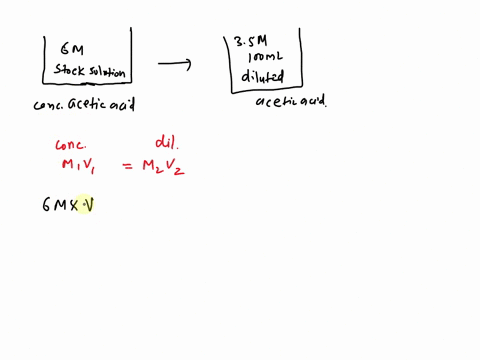 6M
Stock solution
conc. acetic acid
3.5M
100mL
diluted
acetic acid.
conc. dil.
M₁V₁ = M₂V₂
6M x V